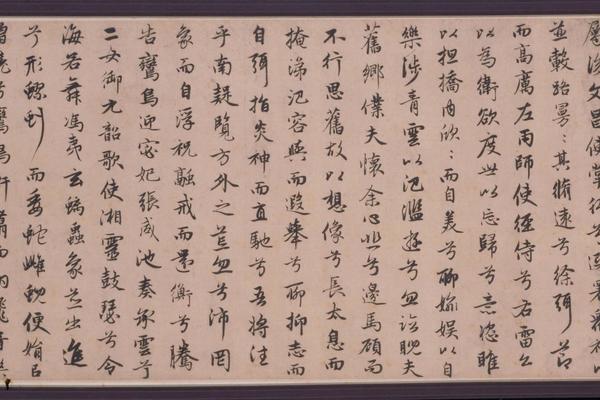 屬後文昌使掌行兮選署眾神以
並轂路曼〻其脩遠兮徐弭節
而高厲左雨師使徑侍兮右雷公
以為衛欲度世以忘歸兮意恣睢
以担撟內欣〻而自美兮聊媮娛以自
樂涉青雲以汎濫遊兮忽臨睨夫
舊鄉僕夫懷余心悲兮邊馬顧而
不行思舊故以想像兮長太息而
掩涕汜容與而遐舉兮聊抑志而
自弭指炎神而直馳兮吾將往
乎南疑覽方外之荒忽兮沛罔
象而自浮祝融戒而還衡兮騰
告鸞鳥迎宓妃張咸池奏承雲兮
二女御九韶歌使湘靈鼓瑟兮令
海若舞馮夷玄螭蟲象並出進
兮形蟉虯而委蛇雌蜺便娟以